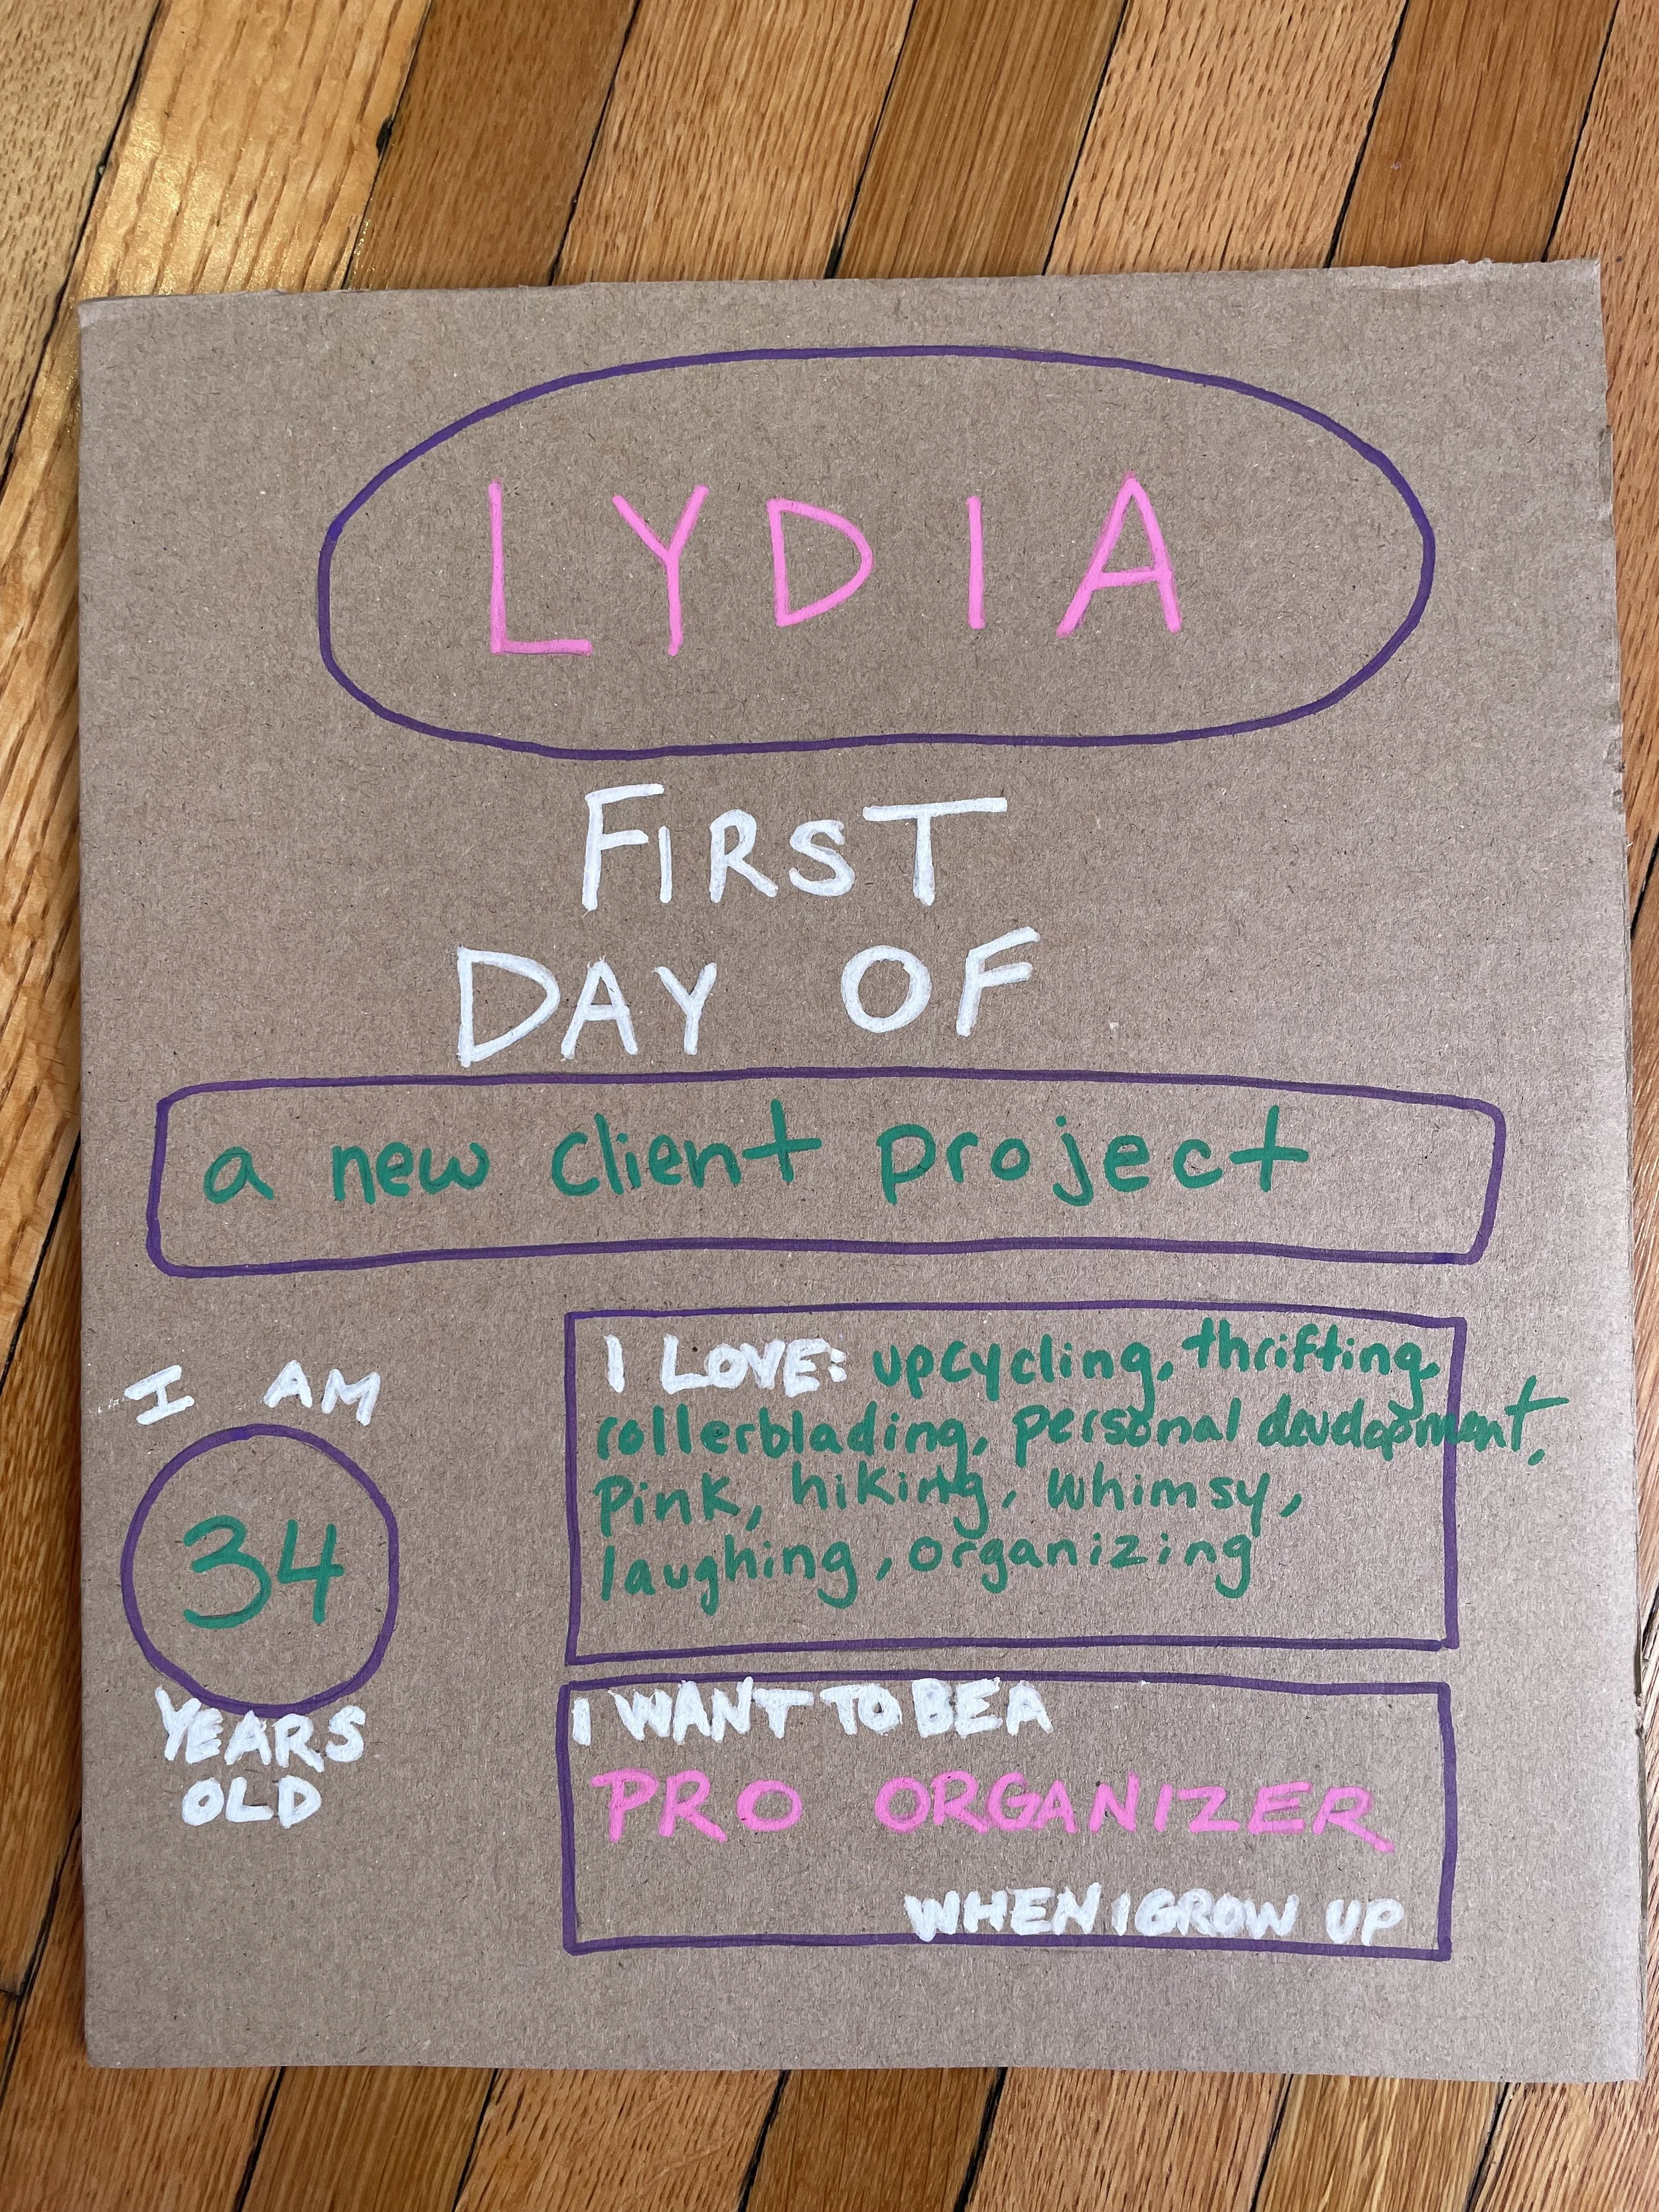 LYDIA
FIRST
DAY OF
a new client project
I AM
34
YEARS
OLD
I LOVE: upcycling, thrifting,
rollerblading, personal development,
pink, hiking, whimsy,
laughing, organizing
I WANT TO BE A
PRO ORGANIZER
WHEN I GROW UP